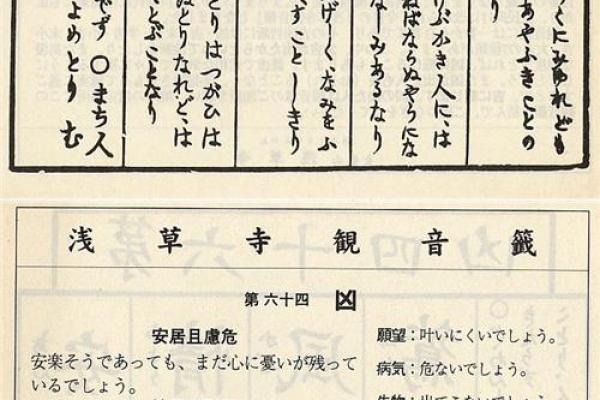 くにみゆれども
あやふきことの
り
ふかき人には
ねばならぬやうにな
みあるなり
げしく、なみをふ
とりはつがひは
ぬとりなれど、は
ことなり
ず 〇まち人
よめとり む
浅草寺観音籤
第六十四 凶
安居且慮危
安楽そうであっても、まだ心に憂いが残って
いるでしょう。
願望：叶いにくいでしょう。
病気：危ないでしょう。